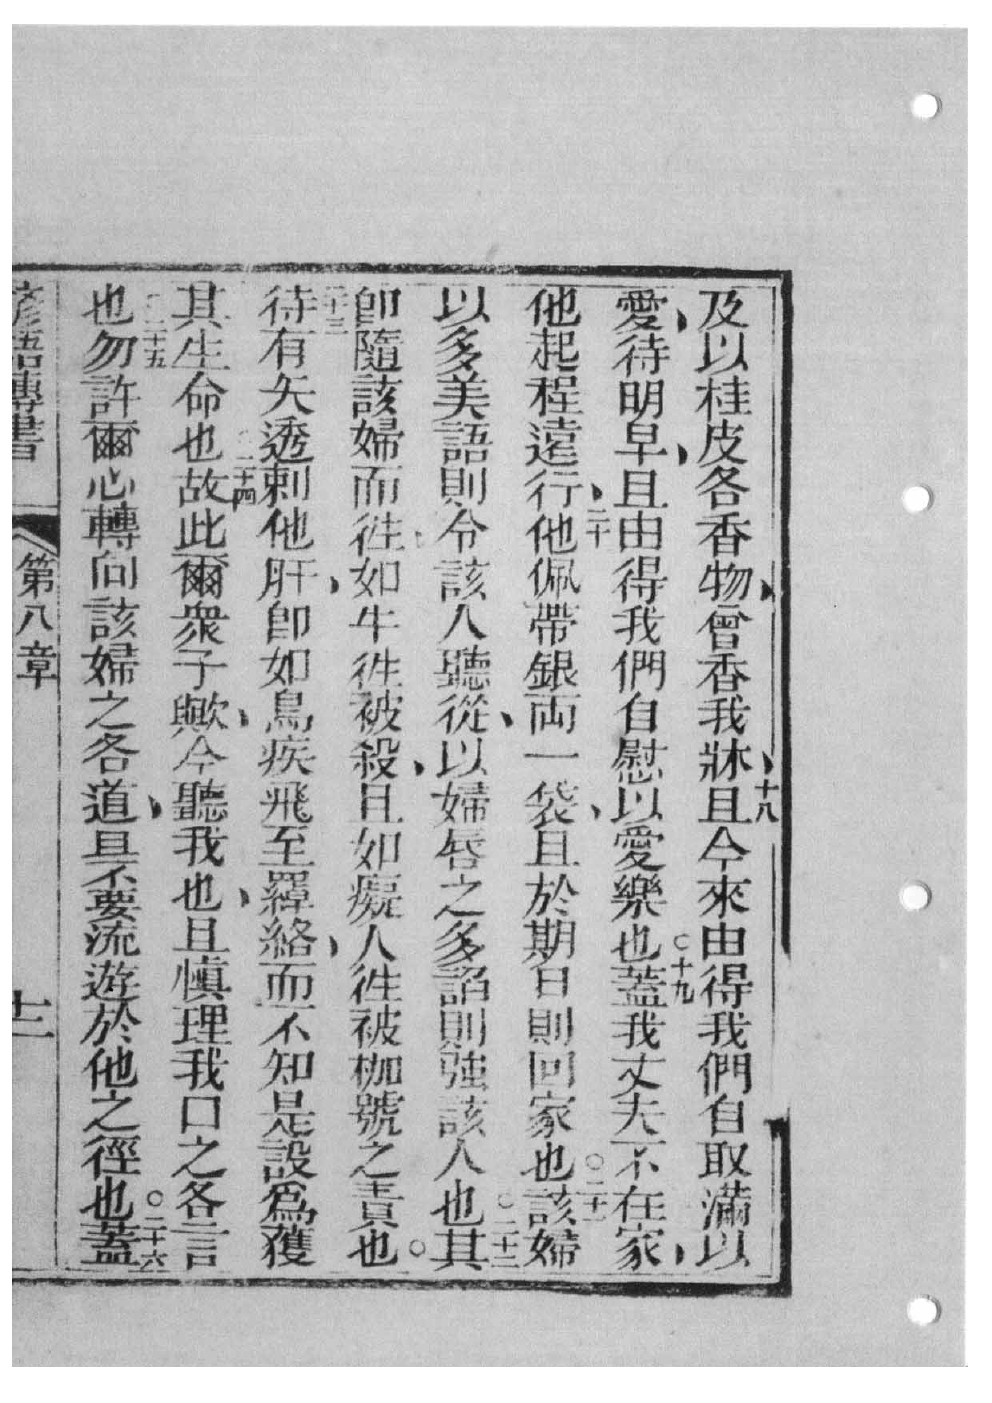 及以桂皮各香物曾香我牀十八且今來由得我們自取滿以
愛待明早且由得我們自慰以愛樂也○十九蓋我丈夫不在家
他起程遠行二十他佩帶銀両一袋且於期日則回家也○二十一該婦
以多美語則令該人聽從以婦唇之多諂則強該人也○二十二其
卽隨該婦而徃如牛徃被殺且如癡人徃被枷號之責也○
二十三待有矢透刺他肝卽如鳥疾飛至羅絡而不知是設爲獲
其生命也二十四故此爾衆子歟今聽我也且愼理我口之各言
也二十五勿許爾心轉向該婦之各道且不要流遊於他之徑也○二十六蓋
諺語傳書 第八章 十二